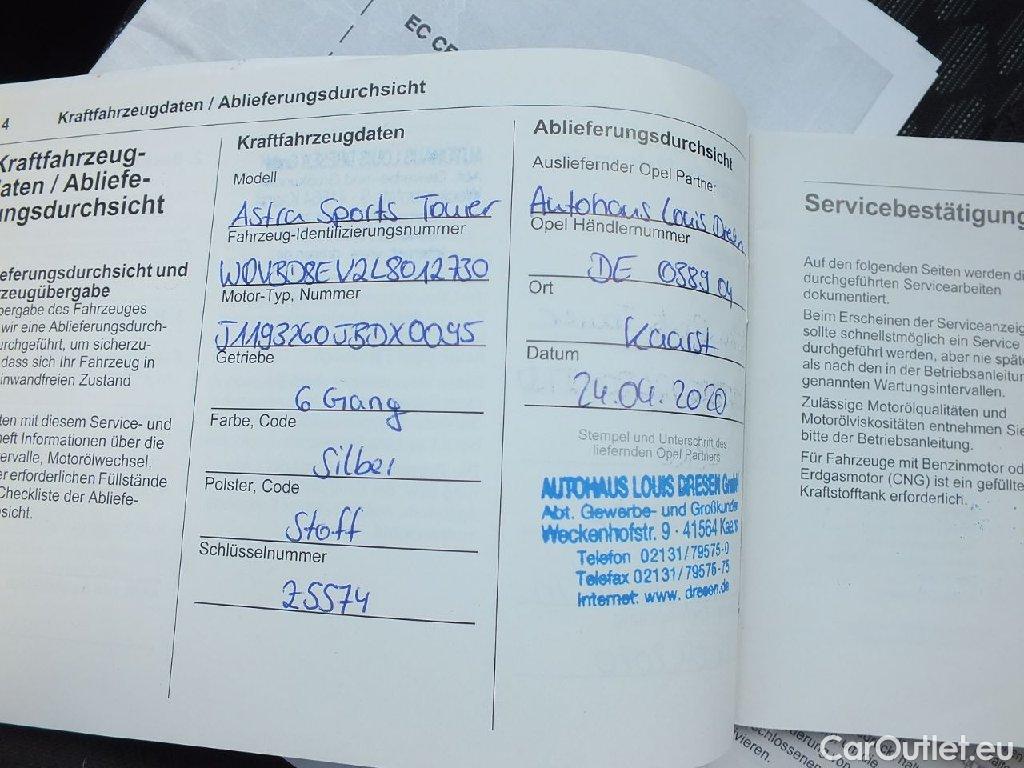 EC CE
4 Kraftfahrzeugdaten / Ablieferungsdurchsicht
Kraftfahrzeug-
daten / Abliefe-
ungsdurchsicht
eferungsdurchsicht und
zeugübergabe
bergabe des Fahrzeuges
wir eine Ablieferungsdurch-
urchgeführt, um sicherzu-
dass sich Ihr Fahrzeug in
inwandfreien Zustand
ten mit diesem Service- und
eft Informationen über die
ervalle, Motorölwechsel,
er erforderlichen Füllstände
Checkliste der Abliefe-
sicht.
Kraftfahrzeugdaten
Modell
Astra Sports Tourer
Fahrzeug-Identifizierungsnummer
W0VBD8EV2L8012730
Motor-Typ, Nummer
J1193260JBDX0095
Getriebe
6 Gang
Farbe, Code
Silber
Polster, Code
Stoff
Schlüsselnummer
Z5574
Ablieferungsdurchsicht
Ausliefernder Opel Partner
Autohaus Louis Dresen
Opel Händlernummer
DE 0889 04
Ort
Kaarst
Datum
24.04.2020
Stempel und Unterschrift des
liefernden Opel Partners
AUTOHAUS LOUIS DRESEN GmbH
Abt. Gewerbe- und Großkunden
Weckenhofstr. 9 - 41564 Kaars
Telefon 02131/79575-0
Telefax 02131/79575-75
Internet: www. dresen.de
Servicebestätigung
Auf den folgenden Seiten werden di
durchgeführten Servicearbeiten
dokumentiert.
Beim Erscheinen der Serviceanzeig
sollte schnellstmöglich ein Service
durchgeführt werden, aber nie späte
als nach den in der Betriebsanleitun
genannten Wartungsintervallen.
Zulässige Motorölqualitäten und
Motorölviskositäten entnehmen Sie
bitte der Betriebsanleitung.
Für Fahrzeuge mit Benzinmotor od
Erdgasmotor (CNG) ist ein gefüllte
Kraftstofftank erforderlich.
CarOutlet.eu